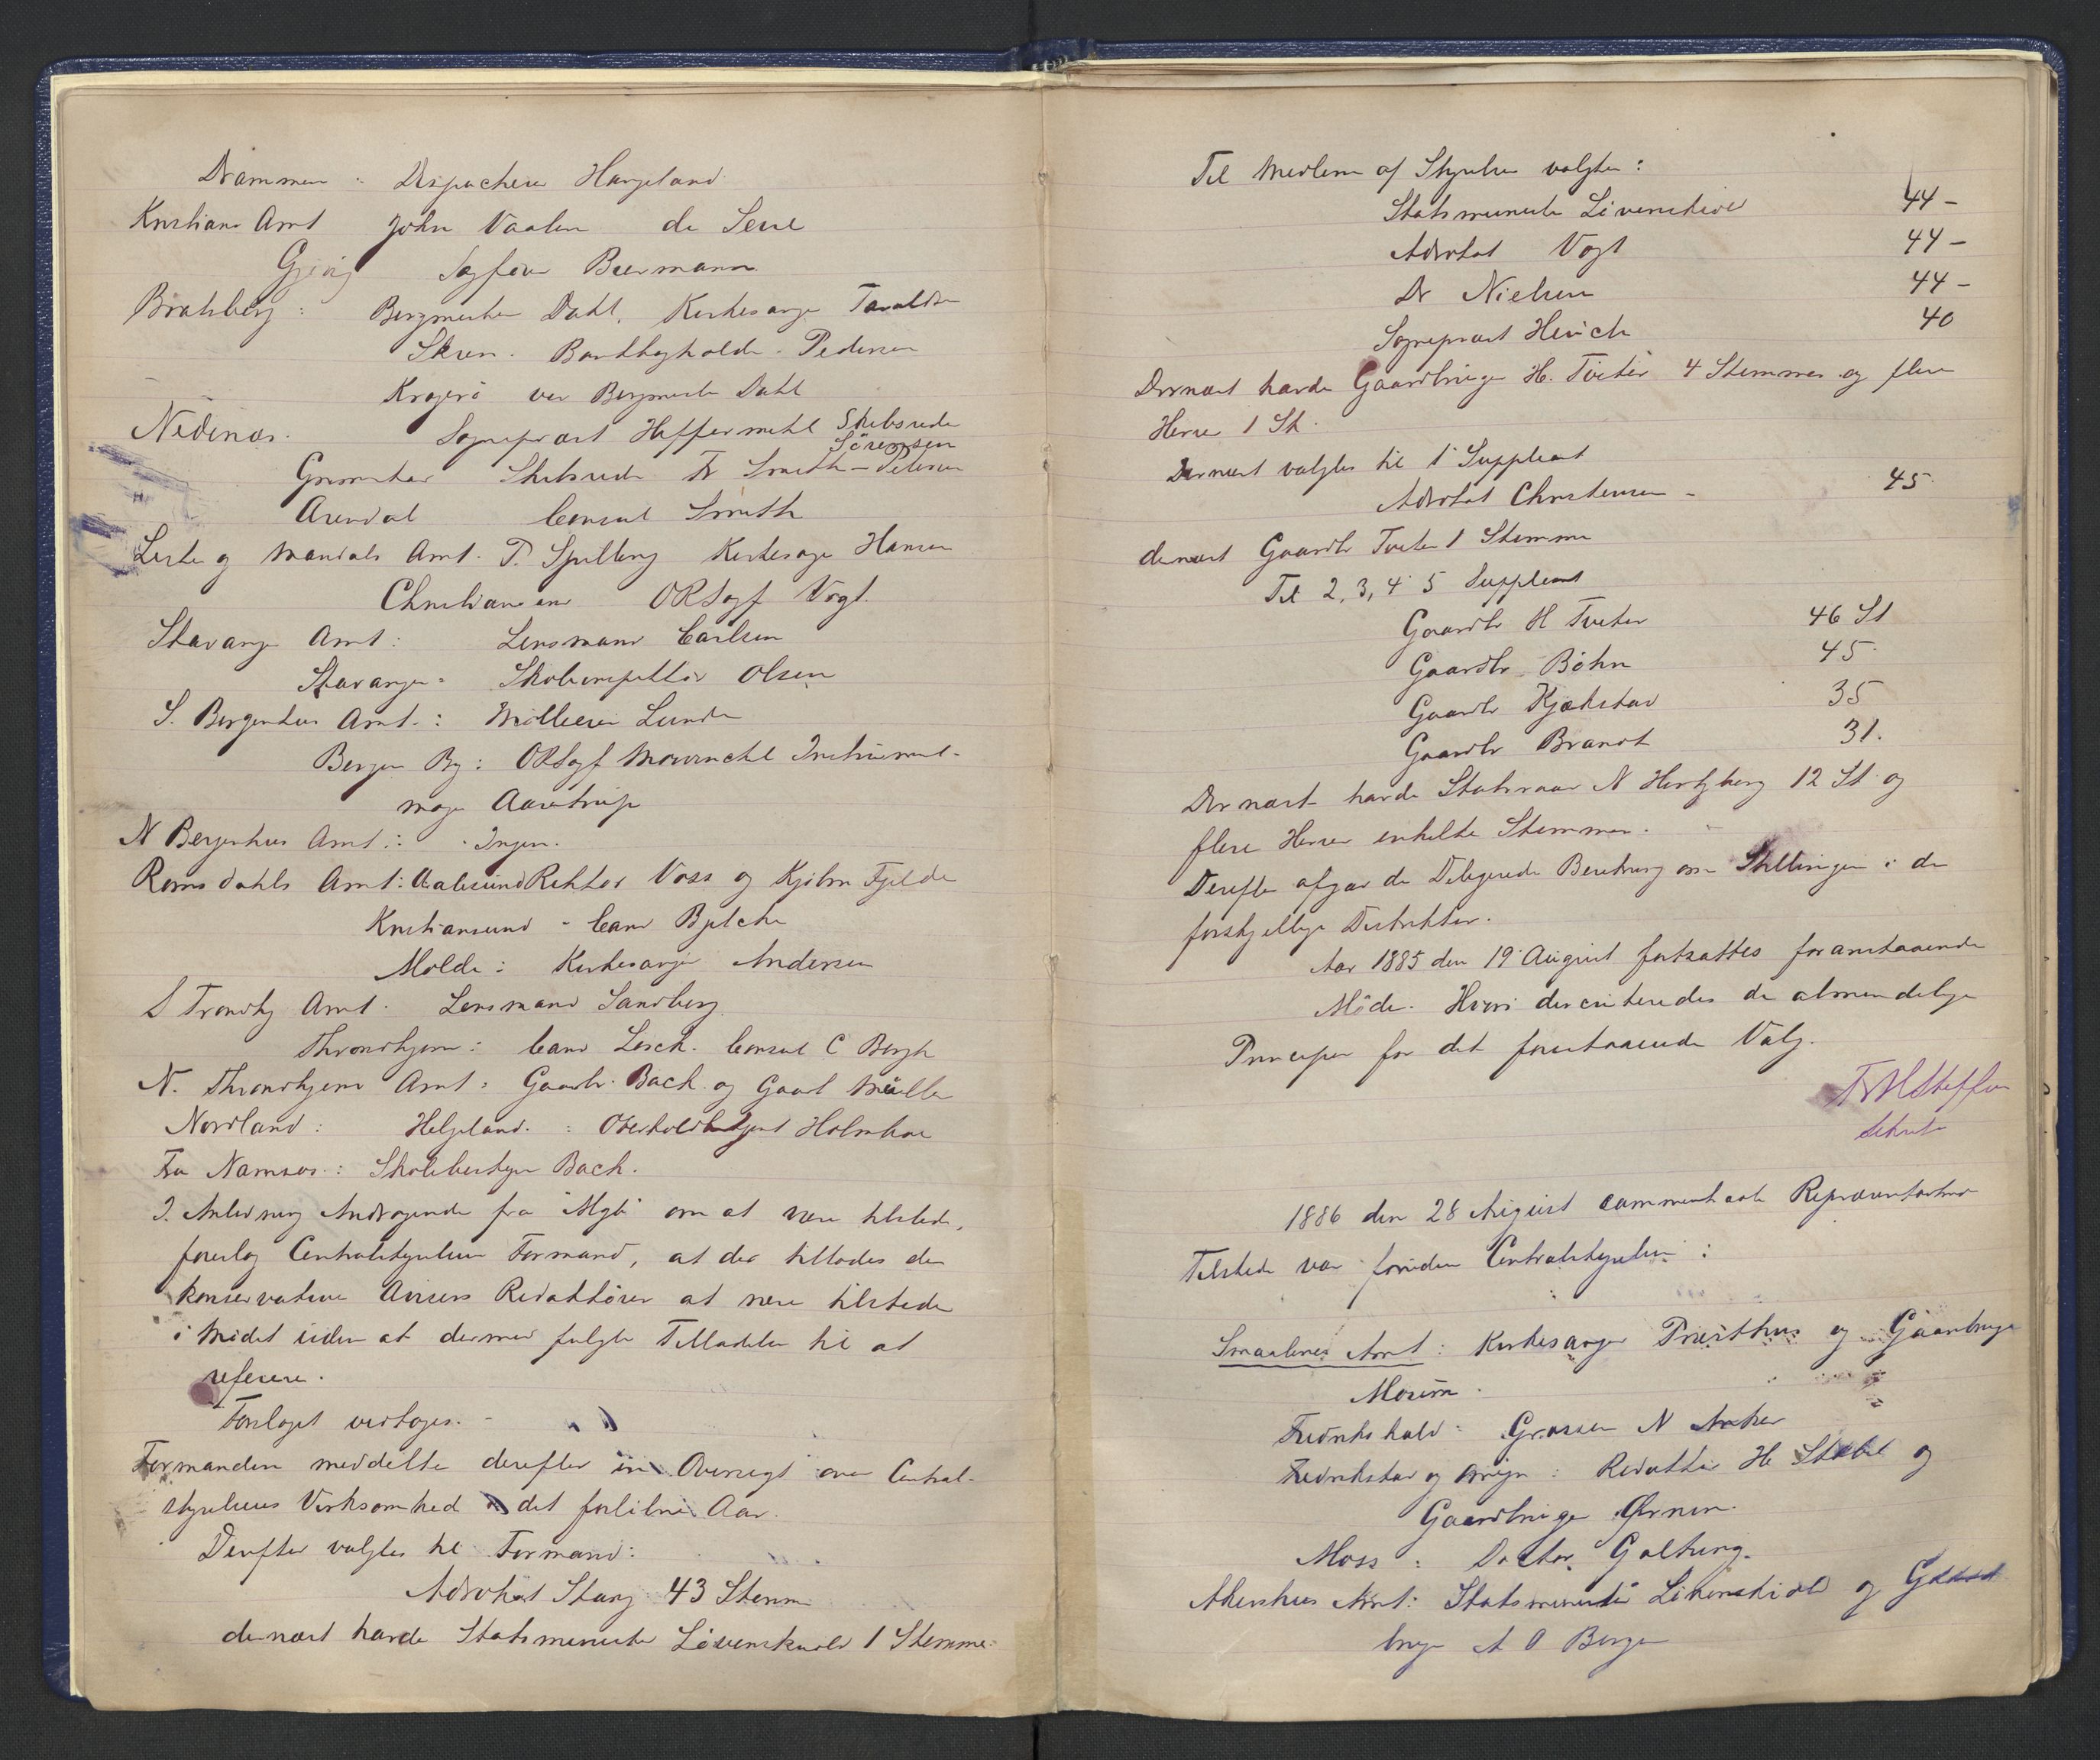 Drammen : Dispacheur Haugeland
Kristians Amt John Vaalen de Seue
Gjøvig Sagfører Biermann
Bratsberg : Bergmester Dahl. Kirkesanger Taraldsen
Skien. Bankbogholder Pedersen
Kragerø ved Bergmester Dahl
Nedenæs. Sognepræst Heffermehl Skibsreder
Sørensen
Grimstad Skibsreder Fr Smith-Petersen
Arendal Consul Smith
Lister og Mandals Amt. P. Spilling Kirkesanger Hansen
Christianssand ORSagf Vogt.
Stavanger Amt : Lensmand Carlsen
Stavanger : Skoleinspektør Olsen
S. Bergenhus Amt. : Mølleeier Lunde
Bergen By : ORSagf Mowinckel Instrument-
mager Aarestrup
N Bergenhus Amt : Ingen.
Romsdahls Amt : Aalesund Rektor Voss og Kjøbm Fjelde
Kristiansund - Cand Bjelche
Molde : Kirkesanger Andersen
S Trondhj Amt. Lensmand Sandberg
Throndhjem : Cand Lerch. Consul C Bergh
N. Throndhjems Amt : Gaardbr. Bach og Gaardb Müller
Nordland : Helgeland. : Holmboe
Fra Namsos : Skolebestyrer Bach.
I Anledning Andragende fra "Mgbl" om at være tilstede,
foreslog Centralstyrelsens Formand, at der tillodes de
konservative Avisers Redaktører at være tilstede
i Mødet uden at dermed fulgte Tilladelse til at
referere.
Forslaget vedtoges. -
Formanden meddelte derefter en Oversigt over Central-
styrelsens Virksomhed i det forløbne Aar.
Derefter valgtes til Formand :
Advokat Stang 43 Stemm
dernæst havde Statsminister Løvenskiold 1 Stemme.
Til Medlem af Styrelsen valgtes :
Statsminister Løvenskiold 44 -
Advokat Vogt 44 -
Dr Nielsen 44 -
Sognepræst Heuch 40
Dernæst havde Gaardbruger H. Tveter 4 Stemmer og flere
Herrer 1 St.
Dernæst valgtes til 1 Suppleant
Advokat Christensen - 45
dernæst Gaardbr Tveter 1 Stemme
Til 2, 3, 4 5 Suppleant
Gaardbr H Tveter 46 St
Gaardbr Böhn 45
Gaardbr Kjækstad 35
Gaardbr Brandt 31.
Dernæst havde Statsraad N Hertzberg 12 St og
flere Herrer enkelte Stemmer.
Derefter afgav de Delegerede Beretning om Stillingen i de
forskjellige Distrikter.
Aar 1885 den 19 August fortsattes foranstaaende
Møde. Hvori discuteredes de almindelige
Principer for det forestaaende Valg.
Steffen
Sekretær
1886 den 28 August sammentraadte Repræsentantsk
Tilstede var foruden Centralstyrelsen :
Smaalenes Amt : Kirkesanger Præsthus og Gaardbruger
Mosum.
Fredrikshald : Grosserer N Anker
Fredrikstad og omegn : Redaktør H Stabel og
Gaardbruger Ørnen.
Moss : Doctor Galtung.
Akershus Amt : Statsminister Løvenskiold og Gaard
bruger A O Berger